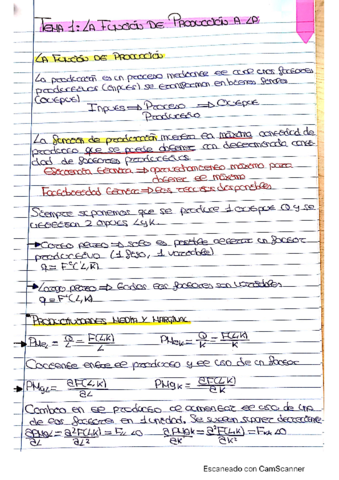 TEMA 1: LA FUNCIÓN DE PRODUCCIÓN A LP
LA FUNCIÓN DE PRODUCCIÓN
La producción es un proceso mediante el cual unos factores
productivos (inputs) se transforman en bienes finales
(outputs)
Inputs → Proceso → Outputs
Productivo
La función de producción muestra la máxima cantidad de
producto que se puede obtener con determinada canti-
dad de factores productivos
Eficiencia técnica → aprovechamiento máximo para
obtener el máximo
Factibilidad técnica → con recursos disponibles
Siempre suponemos que se produce 1 output Q y se
necesitan 2 inputs L y K.
→ Corto plazo → solo es posible alterar un factor
productivo (1 fijo, 1 variable)
q = F(L,K)
→ Largo plazo → todos los factores son variables
q = F(L,K)
PRODUCTIVIDADES MEDIA Y MARGINAL
→ PMe L = Q/L = F(L,K)/L PMe K = Q/K = F(L,K)/K
Cociente entre el producto y el uso de un factor
→ PMg L = ∂F(L,K)/∂L PMg K = ∂F(L,K)/∂K
Cambio en el producto al aumentar el uso de uno
de los factores en 1 unidad. Se suponen decreciente
∂PMgL/∂L = ∂²F(L,K)/∂L² = F <0 ∂PMgK/∂K = ∂²F(L,K)/∂K² = F <0
Escaneado con CamScanner